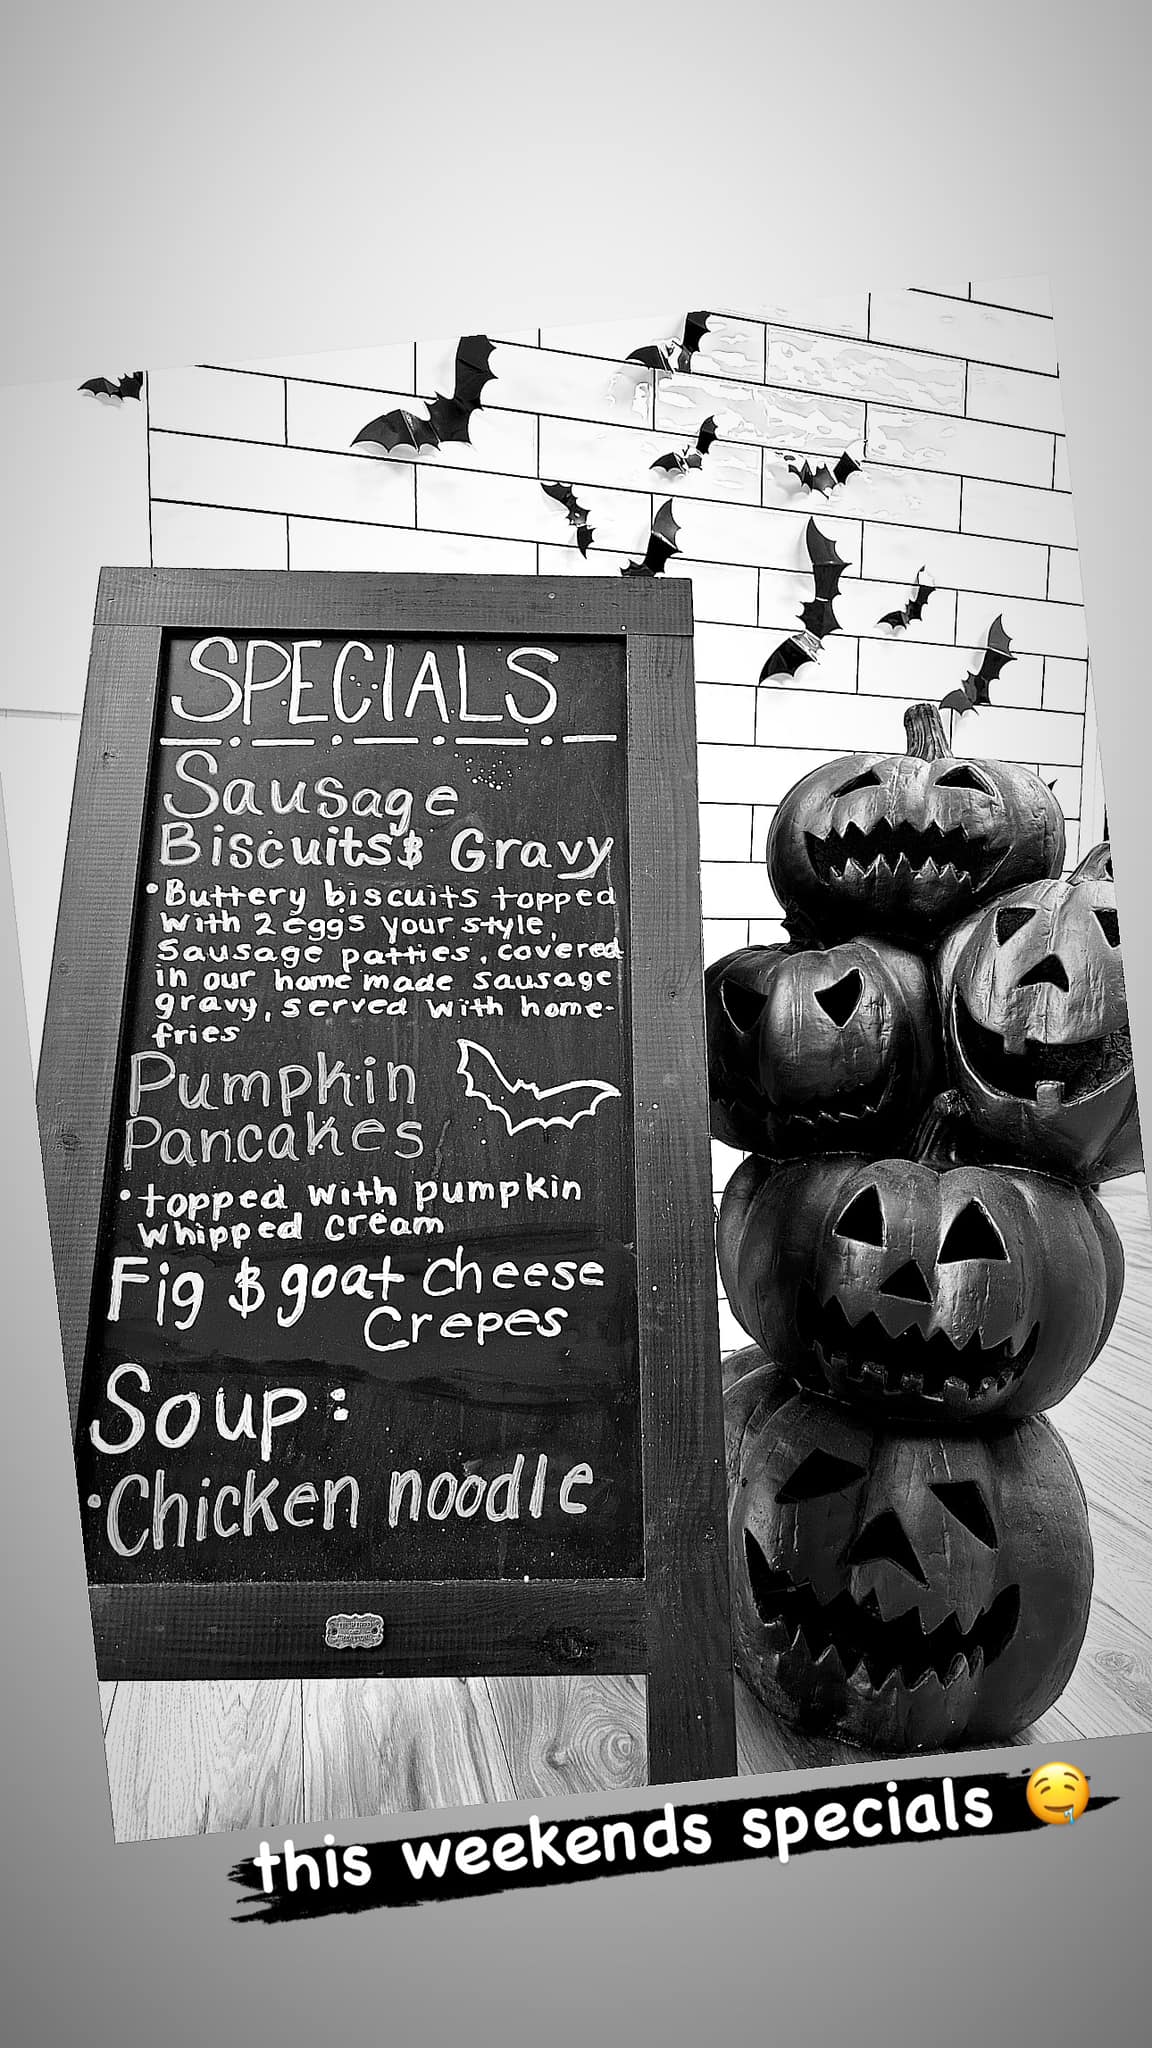 SPECIALS
Sausage
Biscuits & Gravy
• Buttery biscuits topped
with 2 eggs your style,
Sausage patties, covered
in our home made sausage
gravy, served with home-
fries
Pumpkin
Pancakes
• topped with pumpkin
whipped cream
Fig & goat cheese
Crepes
Soup:
• Chicken noodle
this weekends specials 🤤